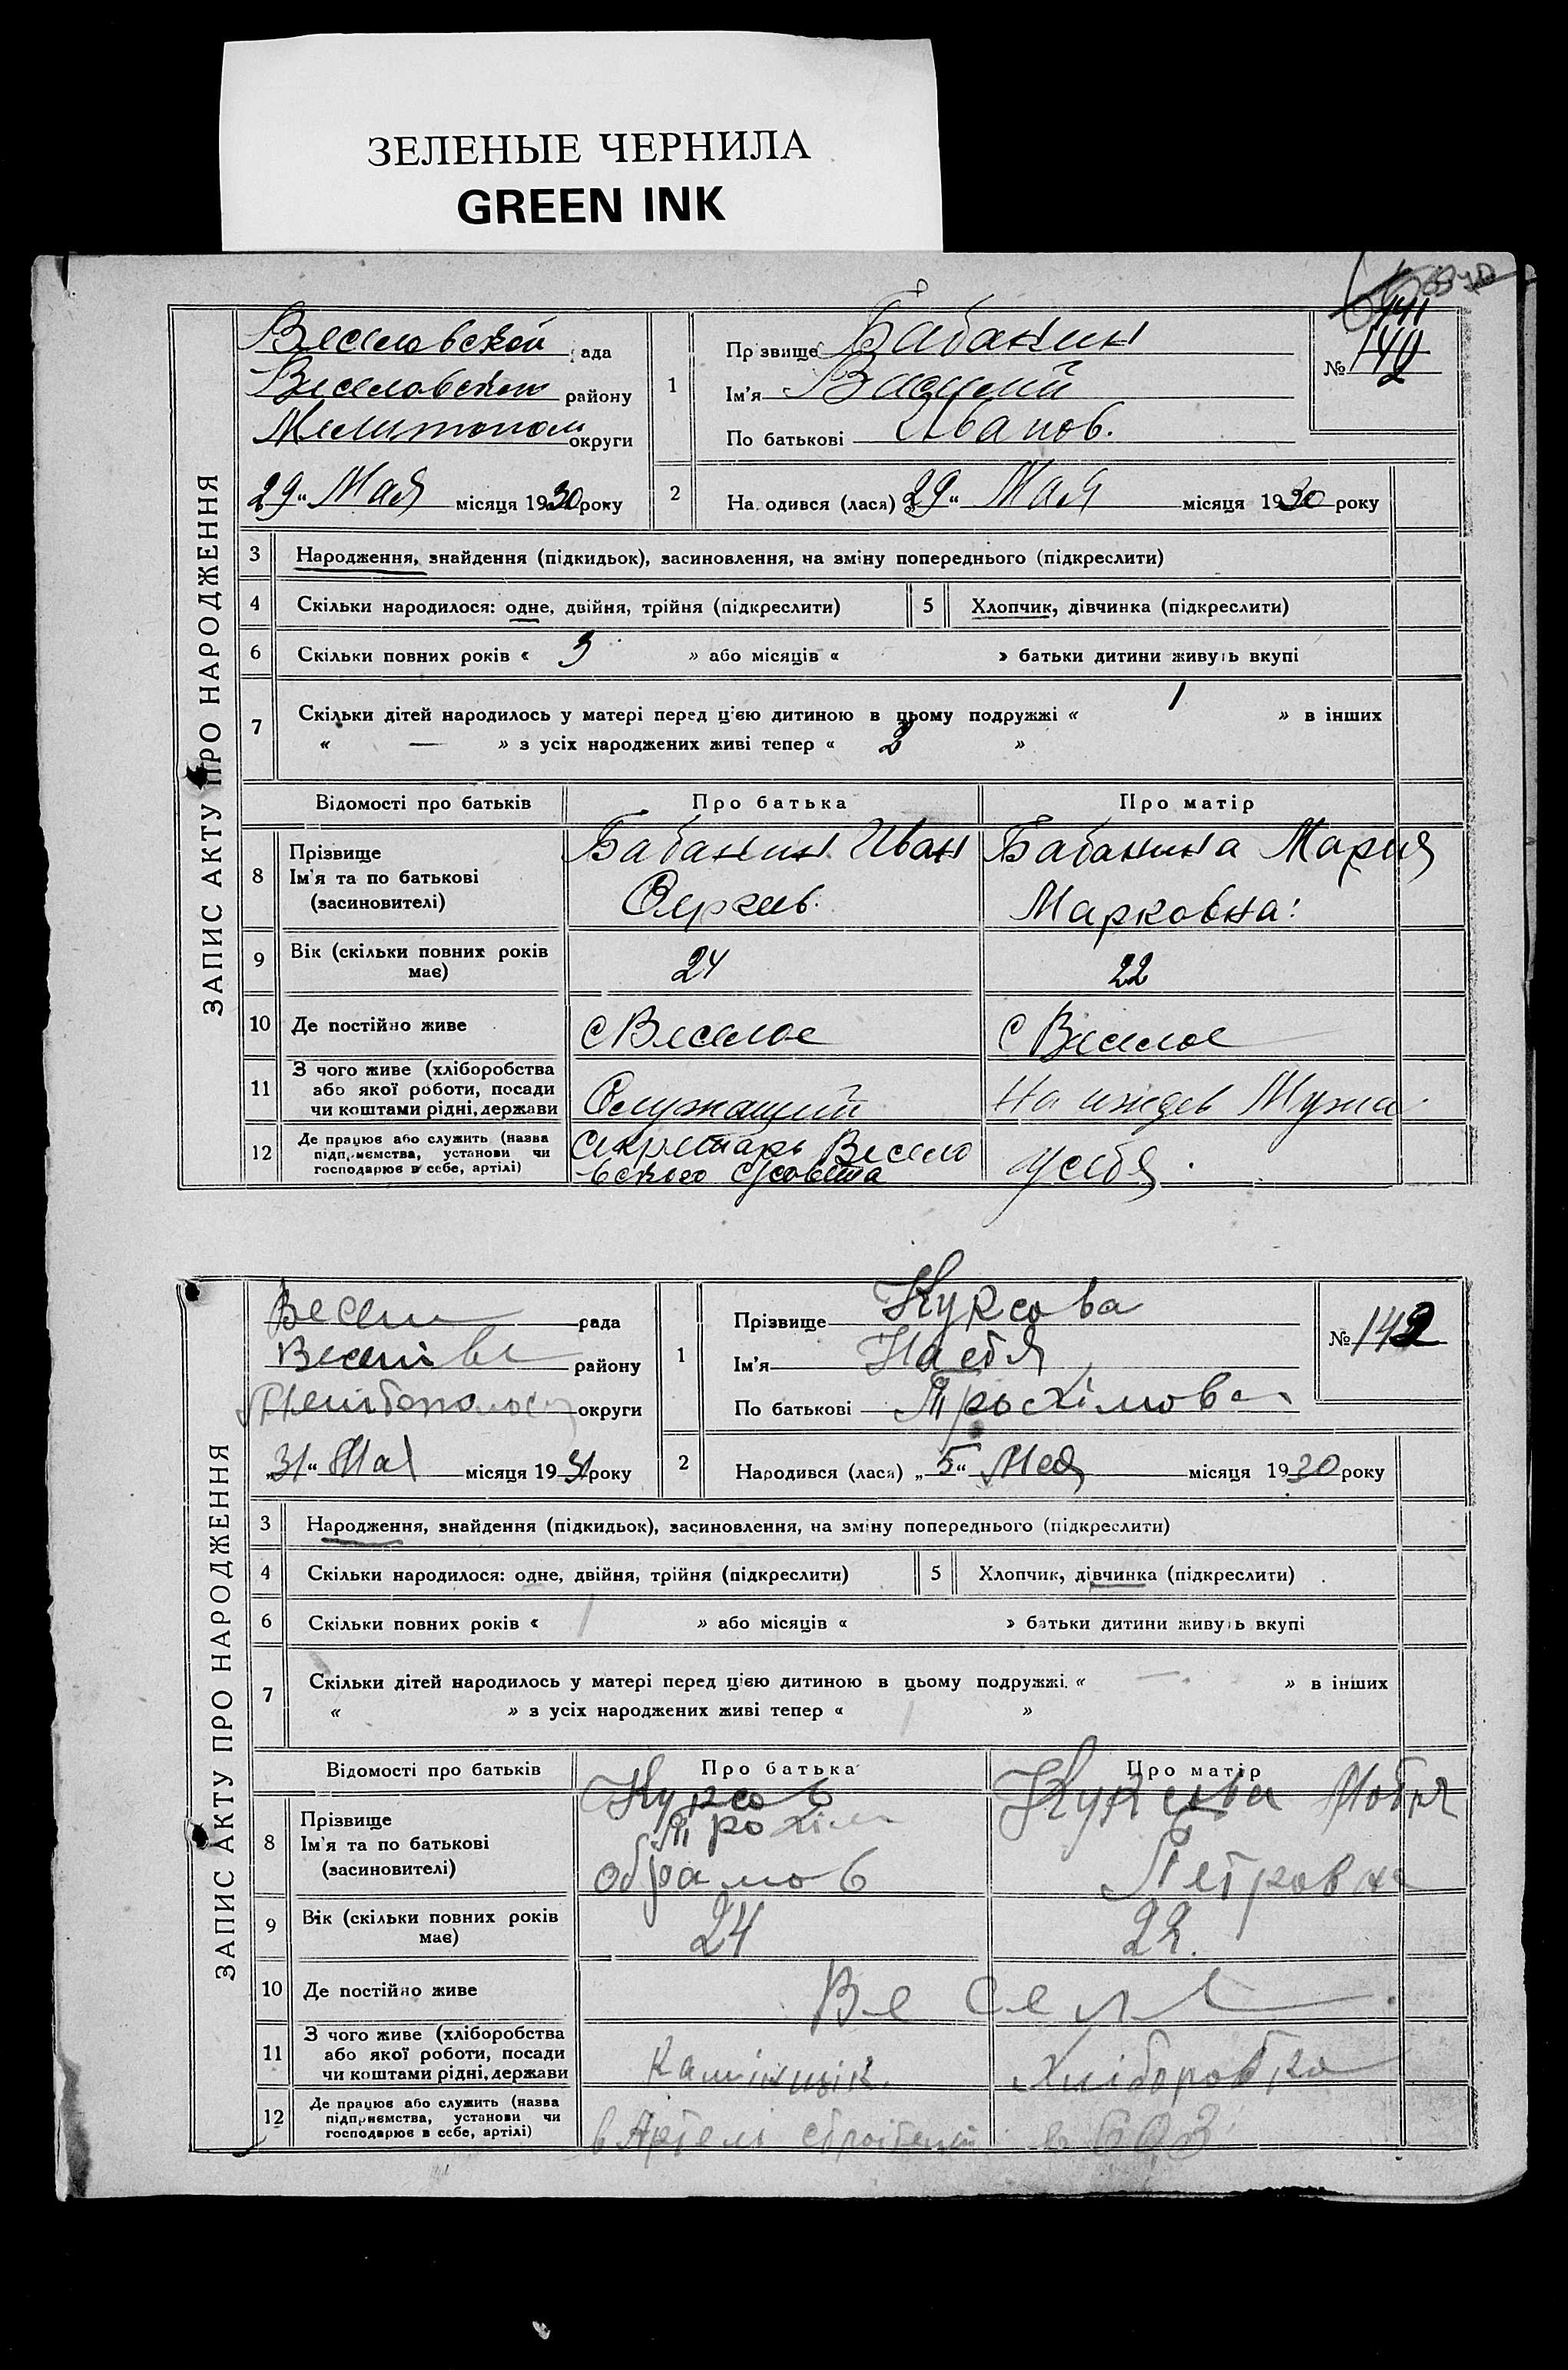 ЗЕЛЕНЫЕ ЧЕРНИЛА
GREEN INK
ЗАПИС АКТУ ПРО НАРОДЖЕННЯ
Веселовской рада
Веселовском району
Мелитопол округи
29 „ Мая місяця 1930 року
1
Прізвище Бабанин
Ім'я Василий
По батькові Иванов.
№ 142
2
Народився (лася) 29 „ Мая місяця 1930 року
3 Народження, знайдення (підкидьок), засиновлення, на зміну попереднього (підкреслити)
4 Скільки народилося: одне, двійня, трійня (підкреслити) 5 Хлопчик, дівчинка (підкреслити)
6 Скільки повних років « 3 » або місяців « » батьки дитини живуть вкупі
7 Скільки дітей народилось у матері перед цією дитиною в цьому подружжі « 1 » в інших
« — » з усіх народжених живі тепер « 2 »
Відомості про батьків Про батька Про матір
8 Прізвище
Ім'я та по батькові
(засиновителі)
Бабанин Иван
Сергеев.
Бабанина Мария
Марковна:
9 Вік (скільки повних років має) 24 22
10 Де постійно живе с Веселое с Веселое
11 З чого живе (хліборобства
або якої роботи, посади
чи коштами рідні, держави
Служащий
На иждев Мужа
12 Де працює або служить (назва
підприємства, установи чи
господарює в себе, артілі)
Секретарь Весело
вского с/совета
у себя.
ЗАПИС АКТУ ПРО НАРОДЖЕННЯ
рада
району
округи
„31“ Мая місяця 19 року
1
Прізвище Курсова
Ім'я
По батькові Трохімова
№ 142
2
Народився (лася) „5“ Мая місяця 1930 року
3 Народження, знайдення (підкидьок), засиновлення, на зміну попереднього (підкреслити)
4 Скільки народилося: одне, двійня, трійня (підкреслити) 5 Хлопчик, дівчинка (підкреслити)
6 Скільки повних років « 1 » або місяців « » батьки дитини живуть вкупі
7 Скільки дітей народилось у матері перед цією дитиною в цьому подружжі « — » в інших
« » з усіх народжених живі тепер « 1 »
Відомості про батьків Про батька Про матір
8 Прізвище
Ім'я та по батькові
(засиновителі)
Курсов
Трохім
Курсова
Петровна
9 Вік (скільки повних років має) 24 22.
10 Де постійно живе Веселе
11 З чого живе (хліборобства
або якої роботи, посади
чи коштами рідні, держави
Хліборобка
12 Де працює або служить (назва
підприємства, установи чи
господарює в себе, артілі)
в Артелі
в СОЗ